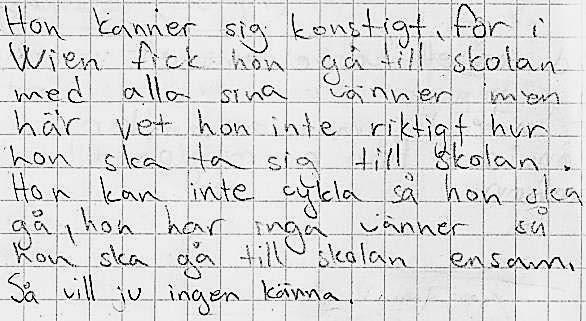 Hon känner sig konstigt, för i
Wien fick hon gå till skolan
med alla sina vänner men
här vet hon inte riktigt hur
hon ska ta sig till skolan.
Hon kan inte cykla så hon ska
gå, hon har inga vänner så
hon ska gå till skolan ensam.
Så vill ju ingen känna.